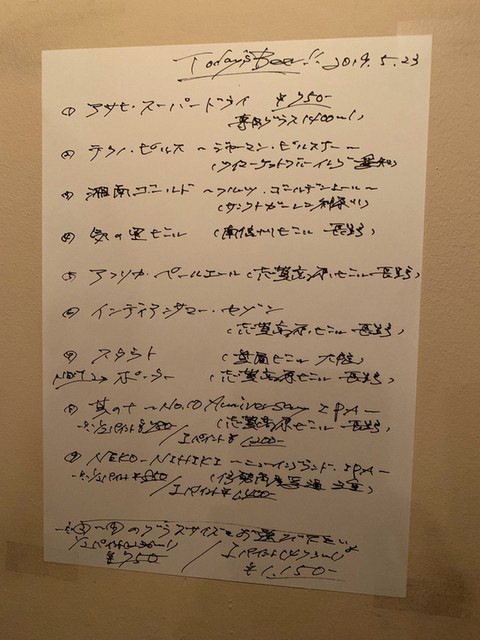 Today's Beer!! 2019.5.23
① アサヒ・スーパードライ ¥750-
専用グラス(400ml)
② テクノ・ピルス 〜ジャーマン・ピルスナー〜
(ワイマーケットブルーイング 愛知)
③ 湘南ゴールド 〜フルーツ・ゴールデンエール〜
(サンクトガーレン 神奈川)
④ 気の里ビール (南信州ビール 長野)
⑤ アフリカ・ペールエール (志賀高原ビール 長野)
⑥ インディアンサマー・セゾン
(志賀高原ビール 長野)
⑦ スタウト (箕面ビール 大阪)
NEXT→ ポーター (志賀高原ビール 長野)
⑧ 其の十 〜No.10 Anniversary IPA〜
※1/2パイント¥780- (志賀高原ビール 長野)
/1パイント¥1,200-
⑨ NEKO-NIHIKI 〜ニューイングランド IPA〜
※1/2パイント¥850 (伊勢角屋麦酒 三重)
/1パイント¥1,400-
※②〜⑦のグラスサイズをお選び下さい
1/2パイント / 1パイント(473ml)
¥750 ¥1,150-